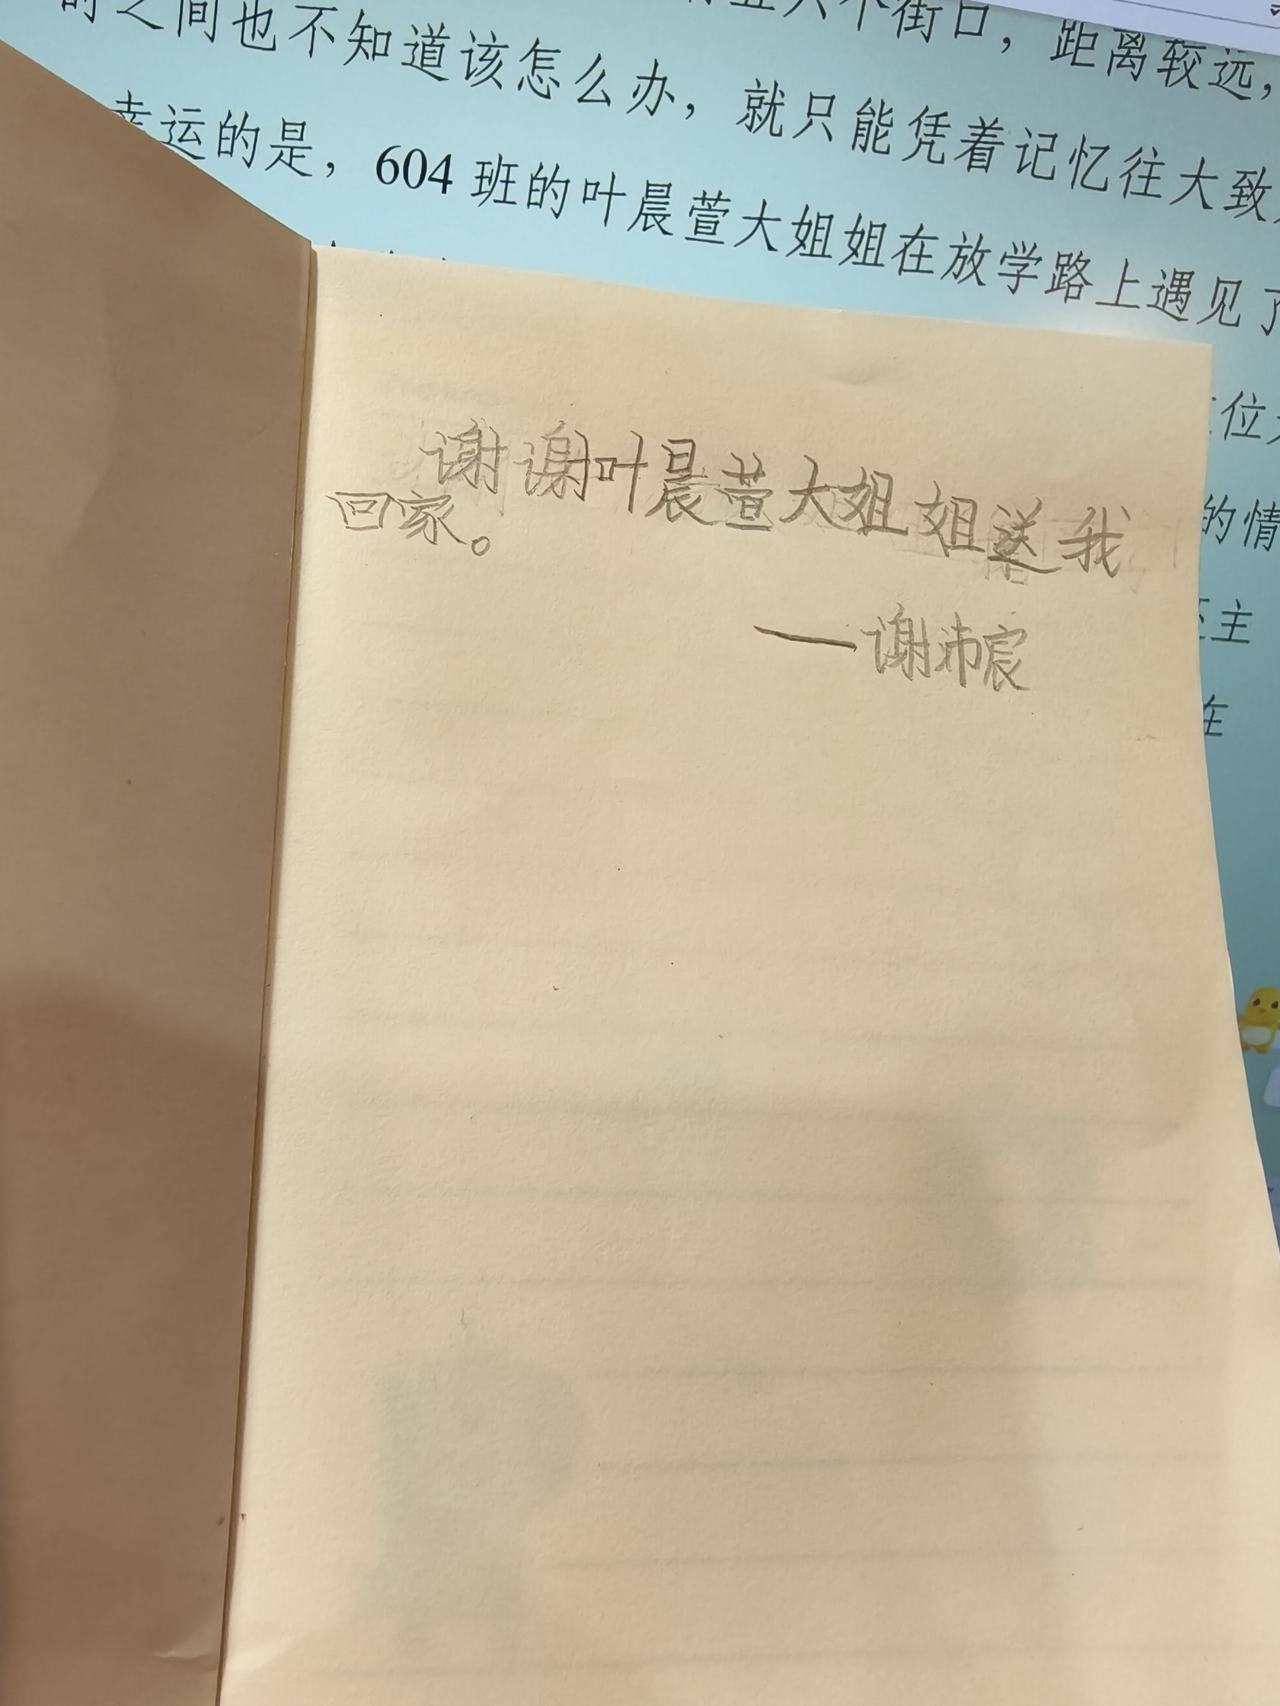 五六个街口，距离较远，
时之间也不知道该怎么办，就只能凭着记忆往大致
幸运的是，604 班的叶晨萱大姐姐在放学路上遇见了
位
的情
主
在
谢谢叶晨萱大姐姐送我
回家。
——谢沛宸